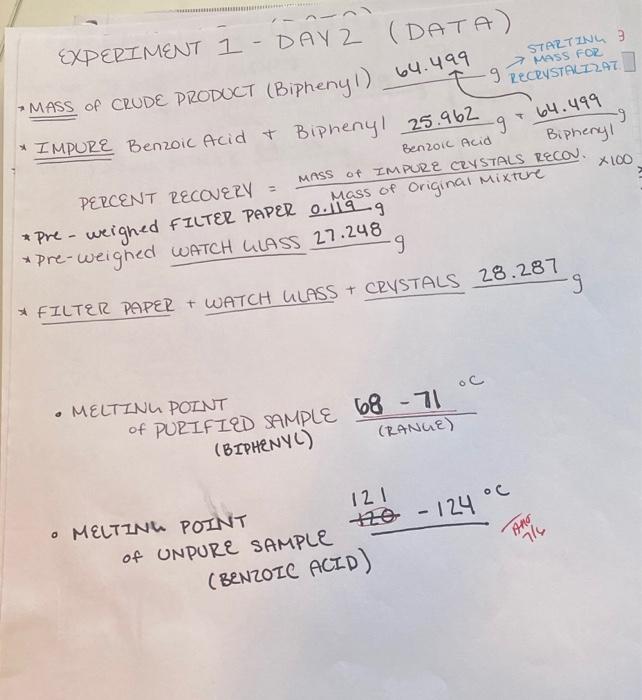 EXPERIMENT 1 - DAY 2 (DATA)
* MASS of CRUDE PRODUCT (Biphenyl) 64.499 g → STARTING MASS FOR RECRYSTALIZAT.
3
* IMPURE Benzoic Acid + Biphenyl 25.962 g + 64.499 g
Benzoic Acid Biphenyl
PERCENT RECOVERY = MASS of IMPURE CRYSTALS RECOV. x100
Mass of Original Mixture
* Pre-weighed FILTER PAPER 0.119 g
* Pre-weighed WATCH GLASS 27.248 g
* FILTER PAPER + WATCH GLASS + CRYSTALS 28.287 g
• MELTING POINT
of PURIFIED SAMPLE 68 - 71 °C
(BIPHENYL) (RANGE)
121
• MELTING POINT 120 - 124 °C
of UNPURE SAMPLE
(BENZOIC ACID)
7/6